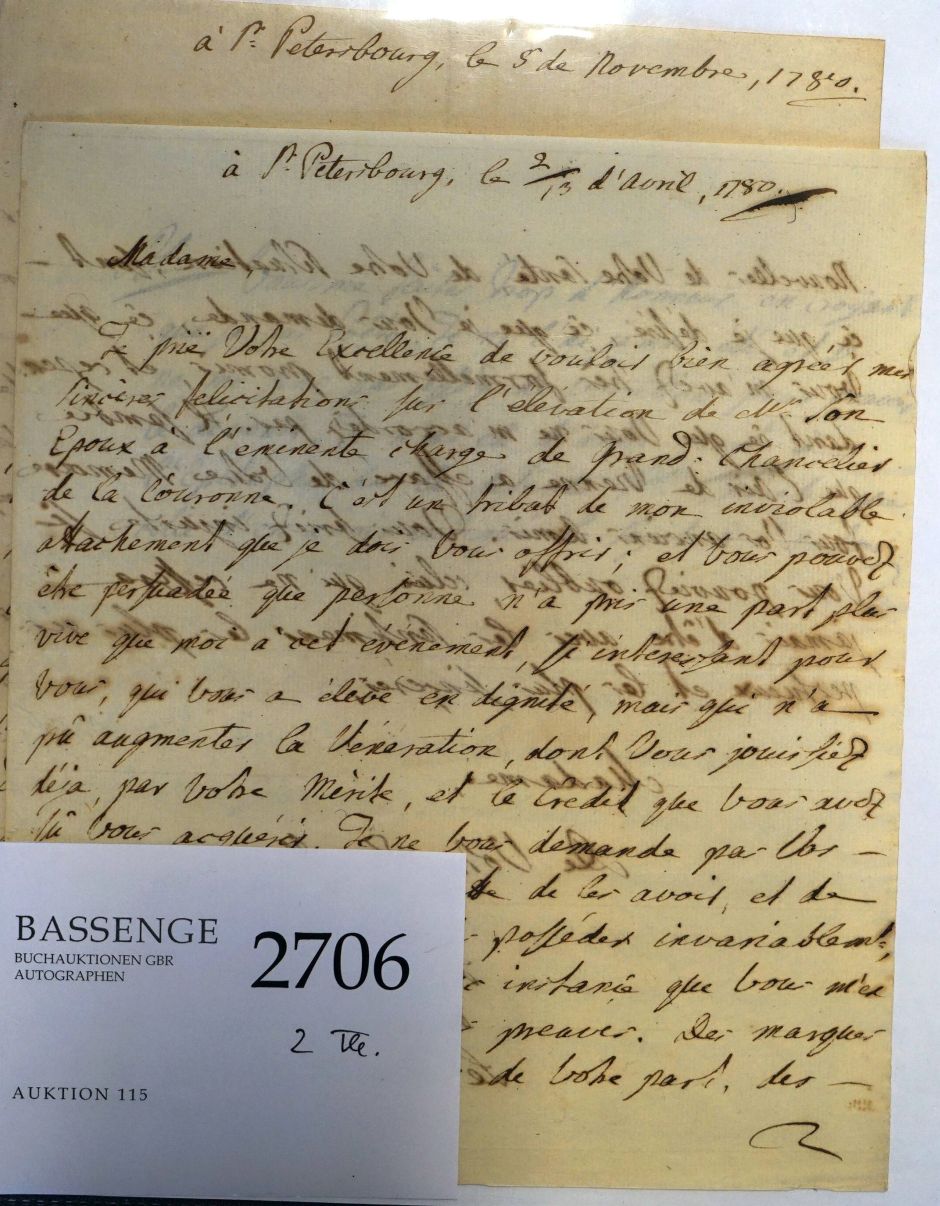 à St. Petersbourg, le 5 de Novembre, 1780.
à St. Petersbourg, le 2/13 d'Avril, 1780.
Madame
Je prie Votre Excellence de vouloir bien agréer mes
sincères félicitations sur l'élévation de Mr. Son
Epoux à l'éminente charge de Grand-Chancelier
de la Couronne. C'est un tribut de mon inviolable
attachement que je dois vous offrir; et vous pouvez
être persuadée que personne n'a pris une part plus
vive que moi a cet évènement, si interessant pour
vous, qui vous a élevé en dignité, mais qui n'a
pû augmenter la Véneration, dont Vous jouissiez
déja par Votre Mérite, et le Credit que vous avez
sû vous acquérir. Je ne vous demande pas Vos
de les avoir, et de
posséder invariablemt,
instanié que vous m'en
preuves. Des marques
de Votre part, des
BASSENGE
BUCHAUKTIONEN GBR
AUTOGRAPHEN
2706
2 Tle.
AUKTION 115